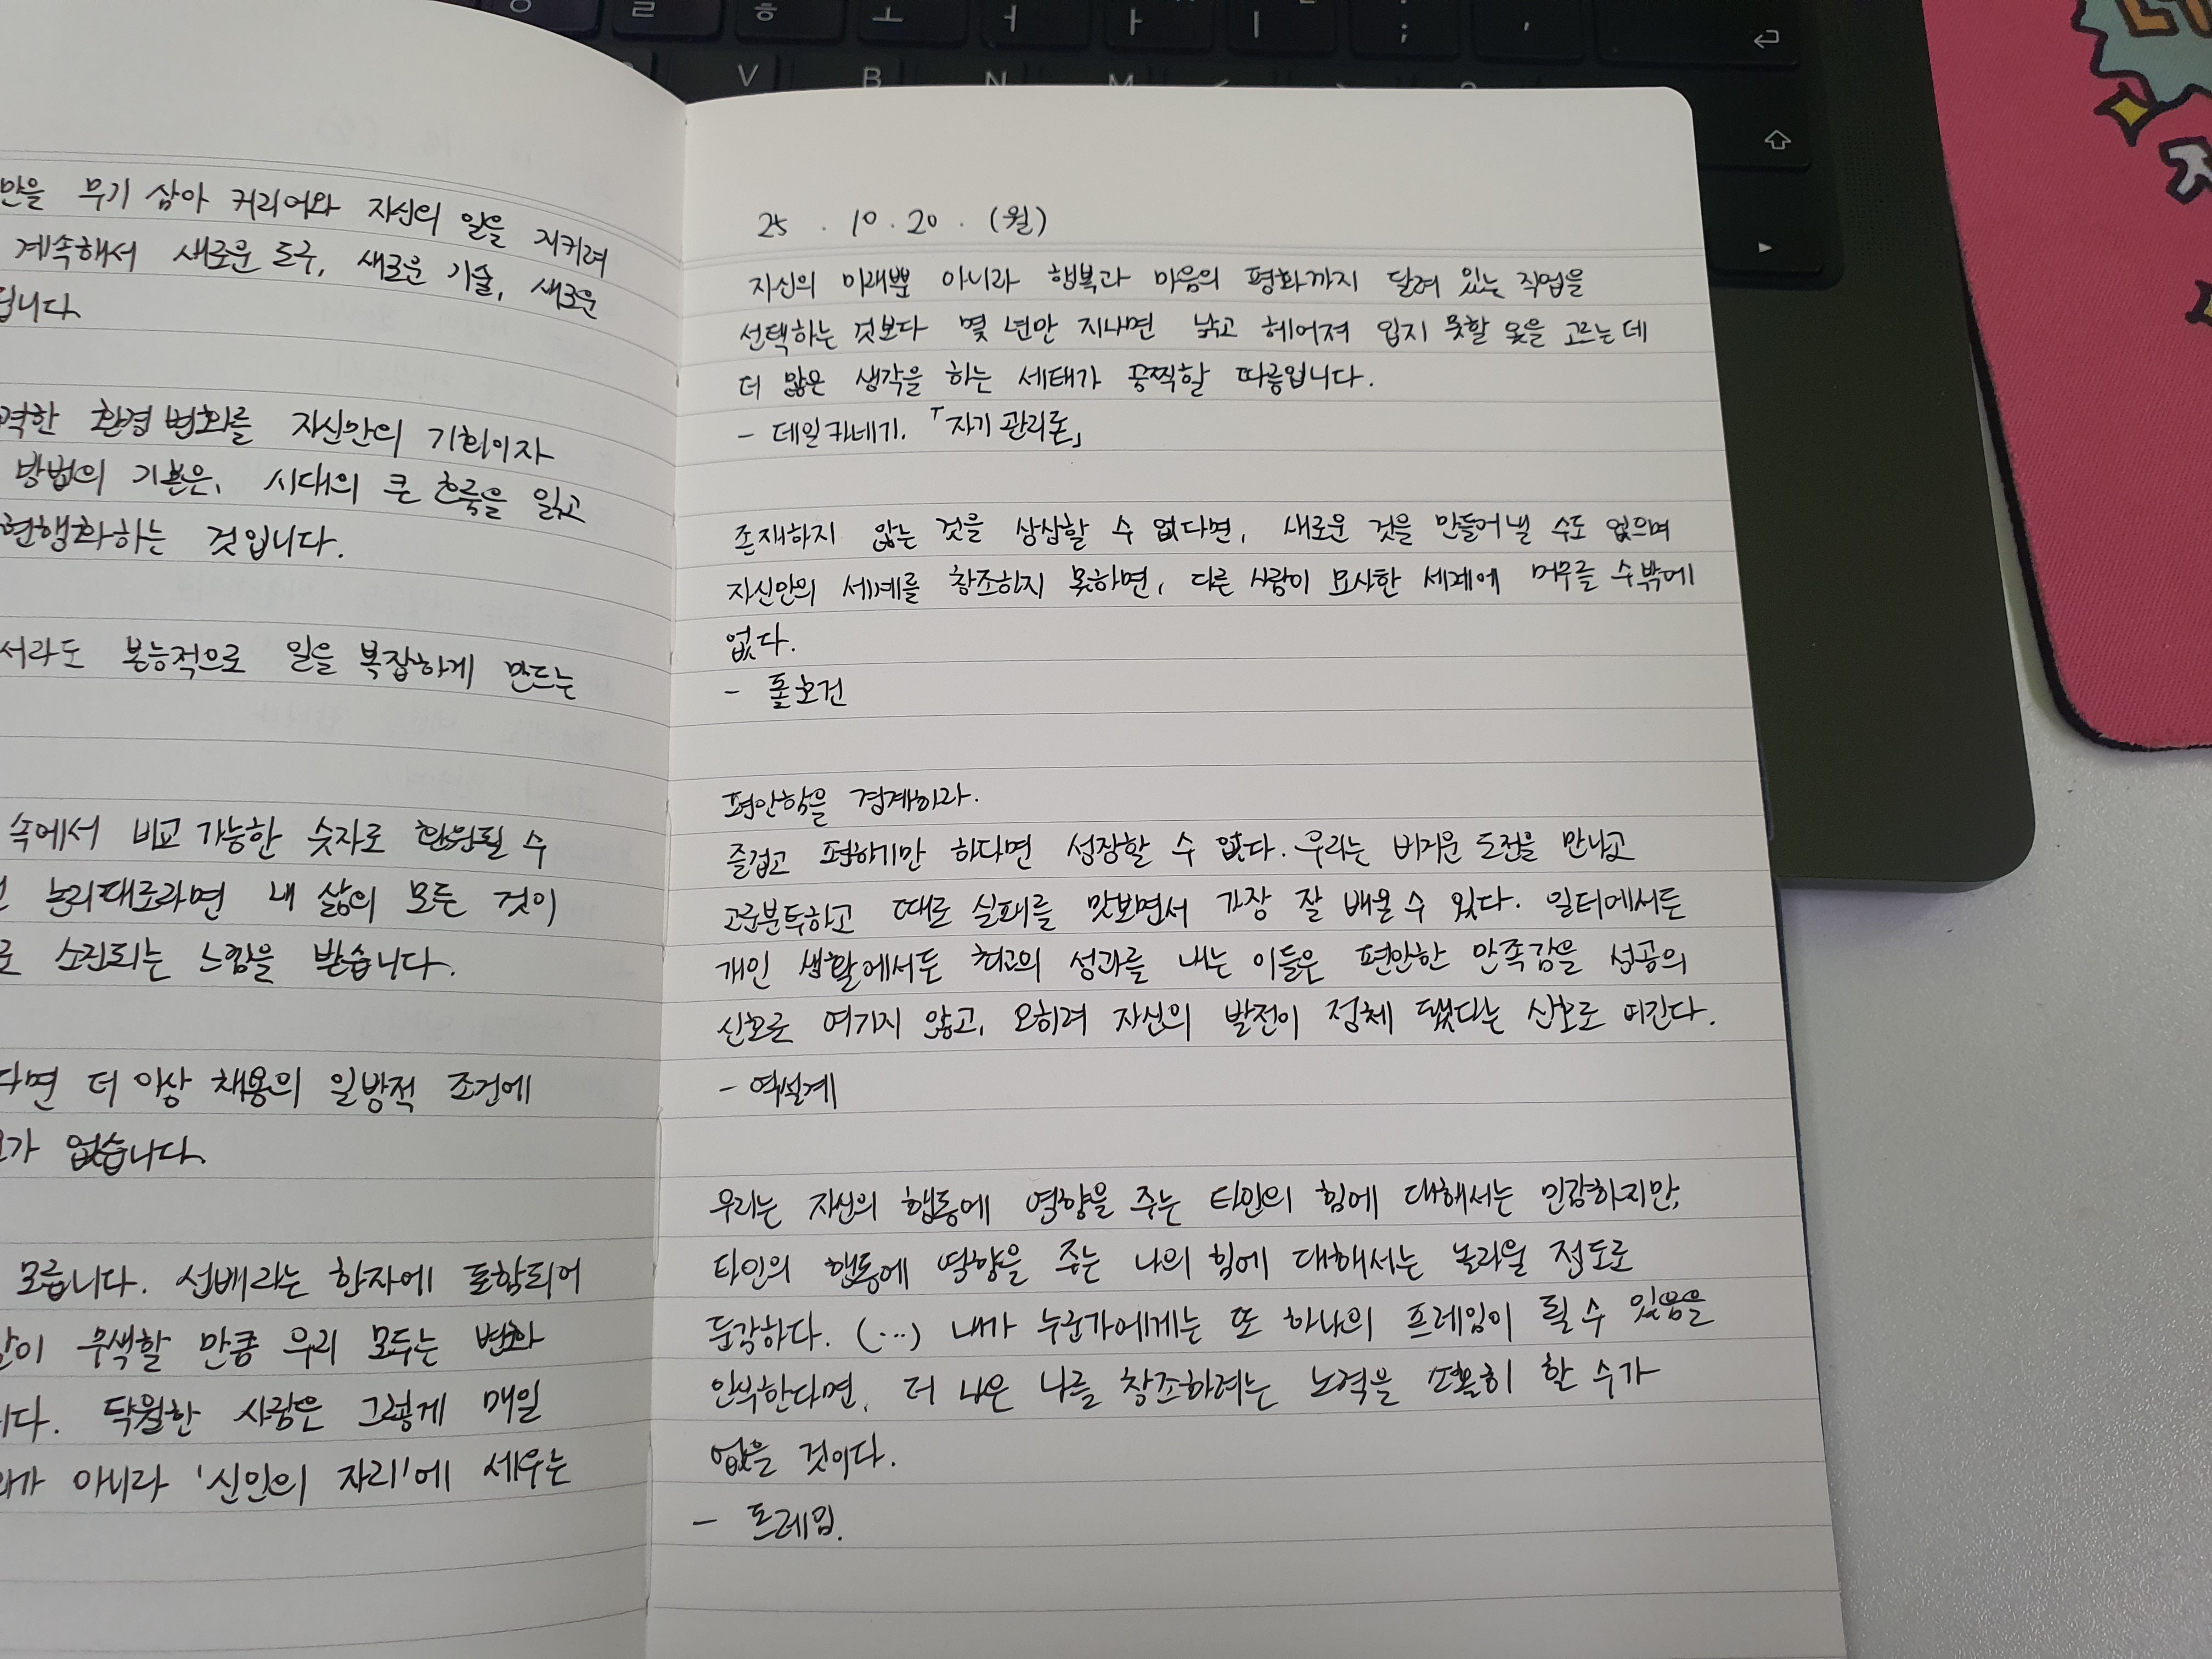 ㄹ ㅎ ㅗ ㅓ ㅏ ㅣ ; '
V B N M < > ?
만을 무기 삼아 커리어와 자신의 일을 지키려
계속해서 새로운 도구, 새로운 기술, 새로운
입니다.
격한 환경 변화를 자신만의 기회이자
방법의 기본은, 시대의 큰 흐름을 읽고
현행화하는 것입니다.
서라도 본능적으로 일을 복잡하게 만드는
속에서 비교 가능한 숫자로 환원될 수
논리대로라면 내 삶의 모든 것이
로 소진되는 느낌을 받습니다.
다면 더 이상 채용의 일방적 조건에
가 없습니다.
모릅니다. 선배라는 한자에 포함되어
말이 무색할 만큼 우리 모두는 변화
니다. 탁월한 사람은 그렇게 매일
가 아니라 '신인의 자리'에 세우는
25 . 10 . 20 . (월)
자신의 미래뿐 아니라 행복과 마음의 평화까지 달려 있는 직업을
선택하는 것보다 몇 년만 지나면 낡고 헤어져 입지 못할 옷을 고르는 데
더 많은 생각을 하는 세태가 끔찍할 따름입니다.
- 데일카네기. 「자기 관리론」
존재하지 않는 것을 상상할 수 없다면, 새로운 것을 만들어 낼 수도 없으며
자신만의 세계를 창조하지 못하면, 다른 사람이 묘사한 세계에 머무를 수밖에
없다.
- 폴호건
편안함을 경계하라.
즐겁고 편하기만 하다면 성장할 수 없다. 우리는 버거운 도전을 만나고
고군분투하고 때로 실패를 맛보면서 가장 잘 배울 수 있다. 일터에서든
개인 생활에서든 최고의 성과를 내는 이들은 편안한 만족감을 성공의
신호로 여기지 않고, 오히려 자신의 발전이 정체 됐다는 신호로 여긴다.
- 역설계
우리는 자신의 행동에 영향을 주는 타인의 힘에 대해서는 민감하지만,
타인의 행동에 영향을 주는 나의 힘에 대해서는 놀라울 정도로
둔감하다. (...) 내가 누군가에게는 또 하나의 프레임이 될 수 있음을
인식한다면, 더 나은 나를 창조하려는 노력을 소홀히 할 수가
없을 것이다.
- 프레임.